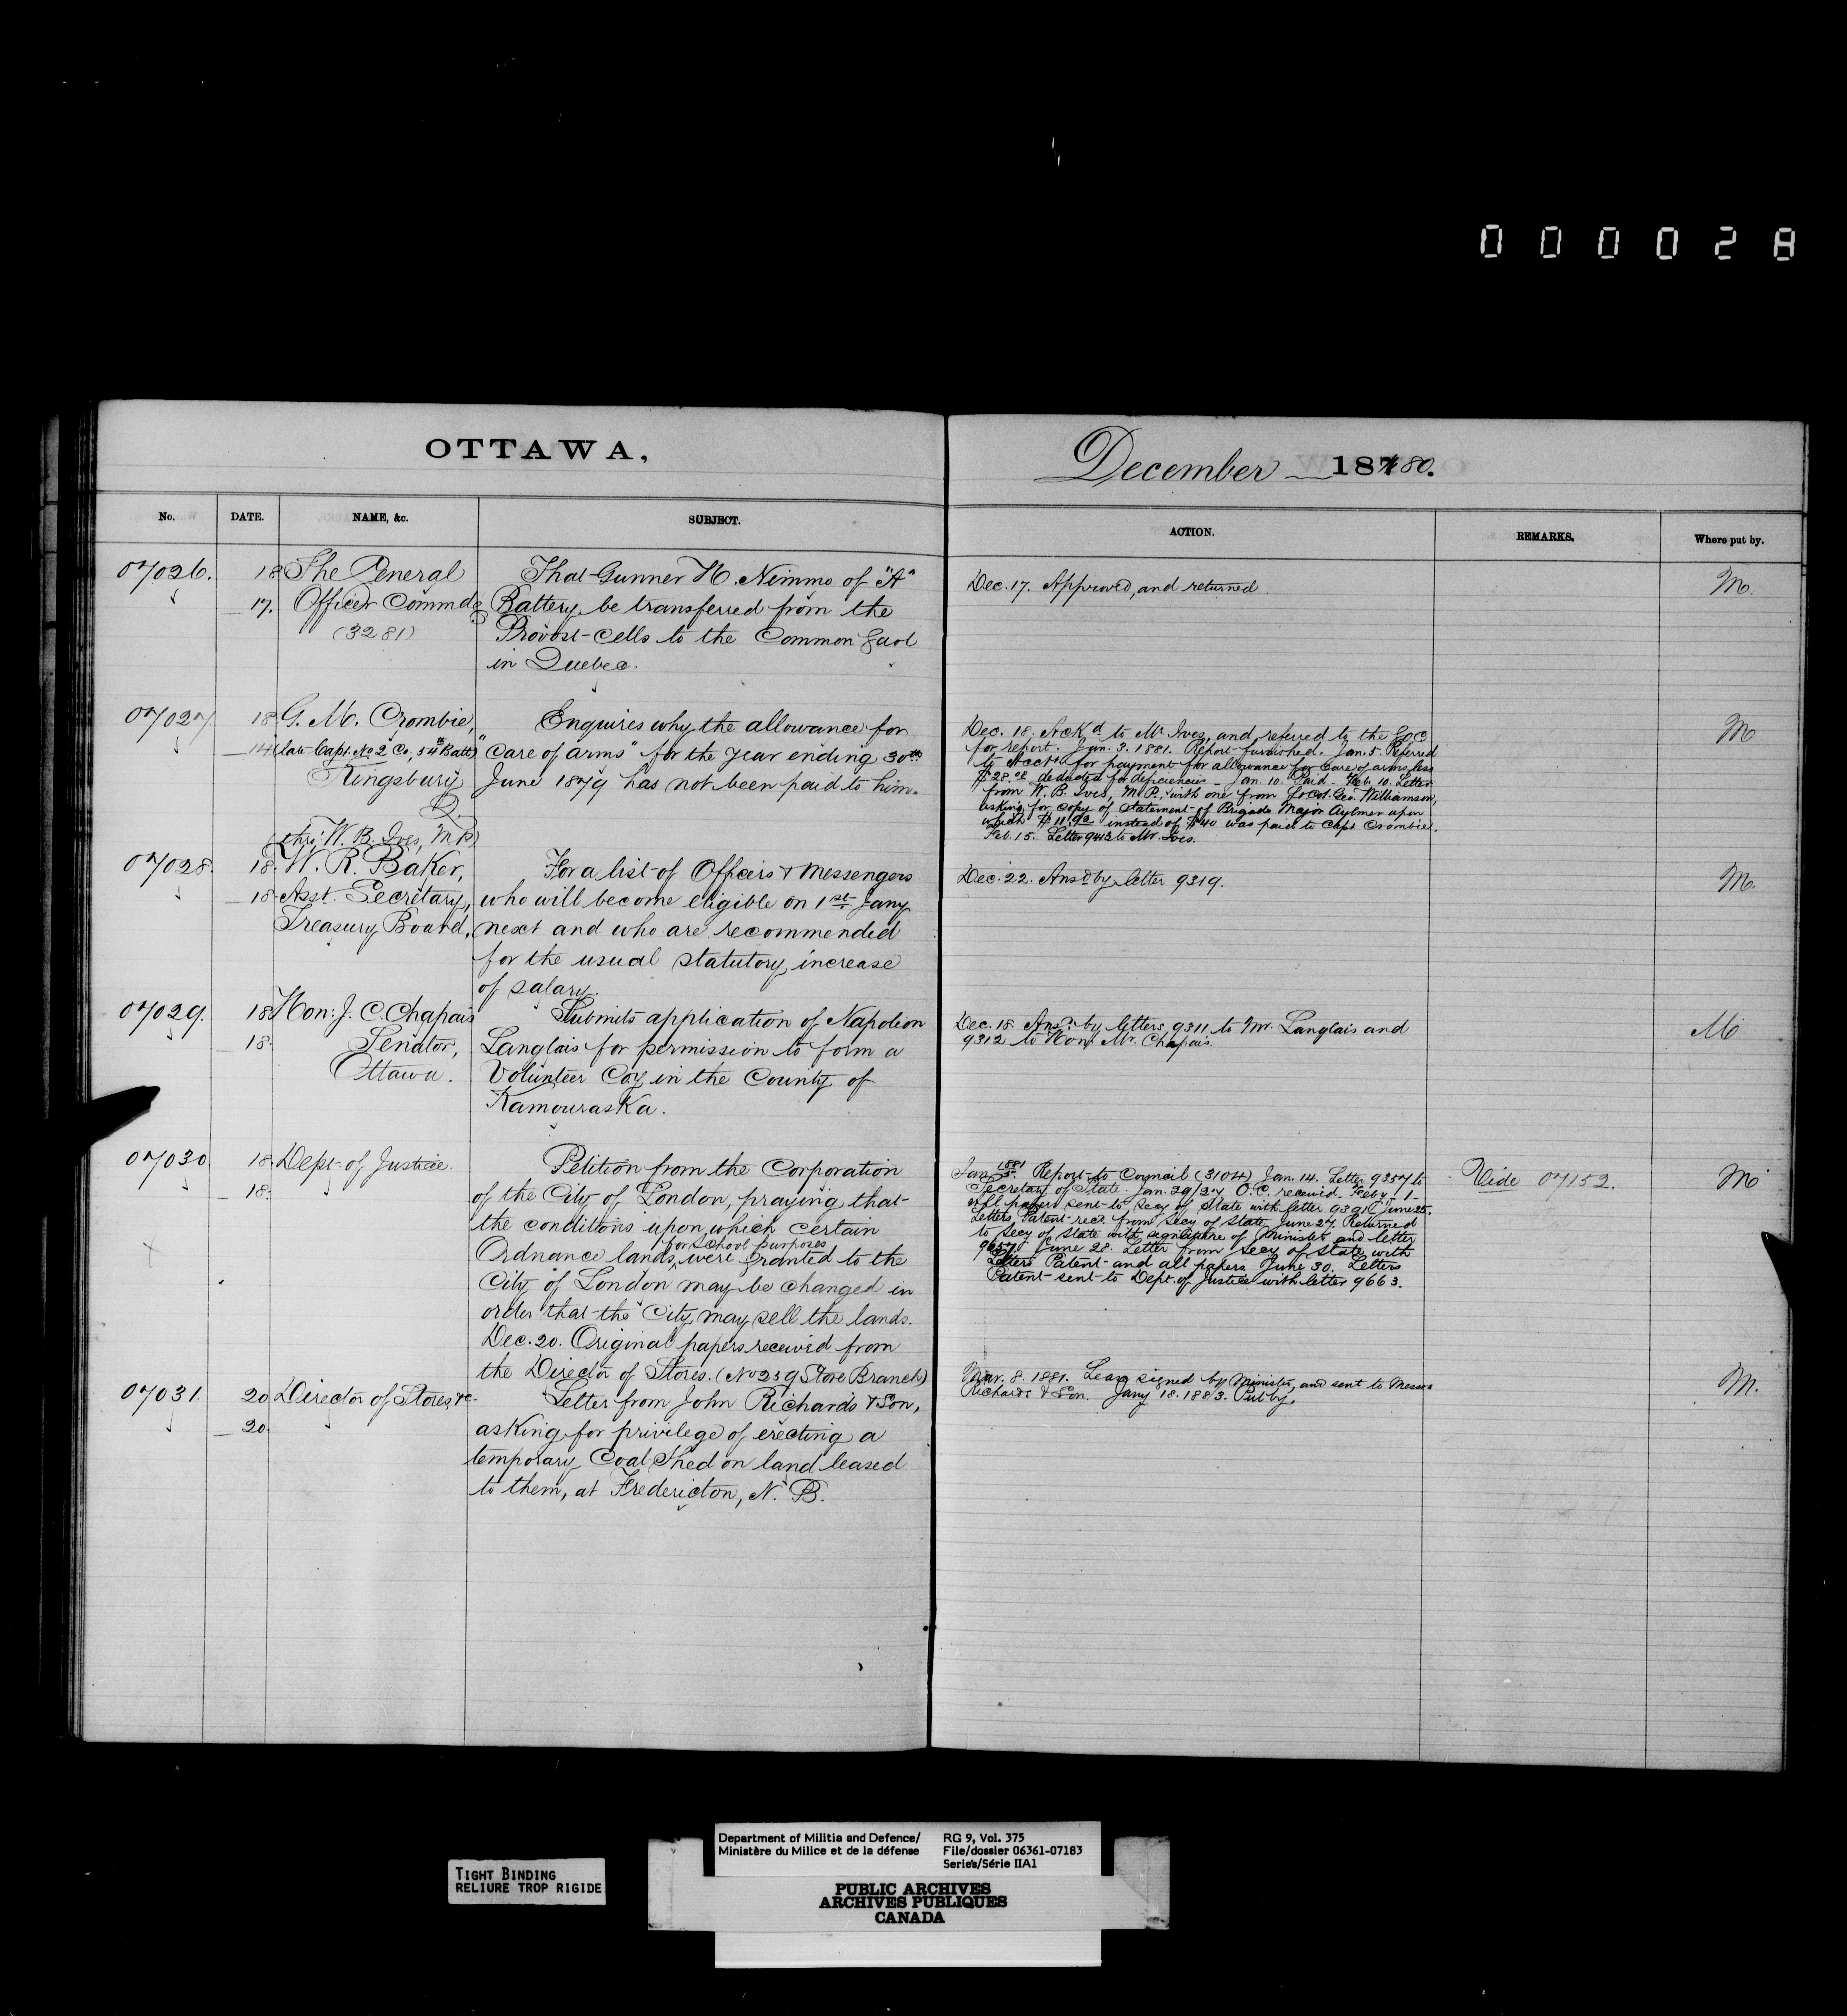 000028
OTTAWA,
No. DATE. NAME, &c. SUBJECT.
07026. 18 The General That Gunner H. Nimmo of "A"
17. Officer Commdg Battery be transferred from the
(3281) Provost-cells to the Common Gaol
in Quebec.
07027 18 G. M. Crombie, Enquires why the allowance for
14 (late Capt. No 2 Co, 54th Batt) "care of arms" for the year ending 30th
Kingsbury June 1879 has not been paid to him.
Q.
(thro' W. B. Ives, M.P.)
07028. 18. W. R. Baker, For a list of Officers & Messengers
18 Asst. Secretary, who will become eligible on 1st Jany
Treasury Board, next and who are recommended
for the usual statutory increase
of salary.
07029. 18 Hon: J. C. Chapais Submits application of Napoleon
18. Senator, Langlais for permission to form a
Ottawa. Volunteer Coy in the County of
Kamouraska.
07030. 18. Dept. of Justice. Petition from the Corporation
18. of the City of London, praying that
the conditions upon which certain
for School purposes
Ordnance lands, were granted to the
City of London may be changed in
order that the City may sell the lands.
Dec. 20. Original papers received from
the Director of Stores. (No 239 Store Branch)
07031. 20 Director of Stores, &c. Letter from John Richards & Son,
20. asking for privilege of erecting a
temporary Coal Shed on land leased
to them, at Fredericton, N. B.
December 18780.
ACTION. REMARKS. Where put by.
Dec. 17. Approved, and returned. M.
Dec. 18. Ackd to Mr Ives, and referred to the G.O.C. M
for report. Jan. 3. 1881. Report furnished. Jan. 5. Referred
to Acct. for payment for allowance for care of arms less
$28.08 deducted for deficiencies - Jan. 10. Paid - Feb. 10. Letter
from W. B. Ives, M.P., with one from Lt Col. Geo. Williamson,
asking for copy of statement of Brigade Major Aylmer upon
which $11.92 instead of $40 was paid to Capt Crombie.
Feb. 15. Letter 9443 to Mr. Ives.
Dec. 22. Ansd by letter 9319. M.
Dec. 18. Ansd by letters 9311 to Mr. Langlais and M
9312 to Hon. Mr. Chapais.
1881
Jan. 5. Report to Council (3104) Jan. 14. Letter 9357 to Vide 07152. M
Secretary of State. Jan. 29/27 O.C. received. Feby 1
all papers sent to Secy of State with letter 9391 June 25.
Letters Patent recd from Secy of State June 27. Returned
to Secy of State with signature of Minister and letter
9657. June 28. Letter from Secy of State with
Letters Patent and all papers June 30. Letters
Patent sent to Dept. of Justice with letter 9663.
Mar. 8. 1881. Lease signed by Minister, and sent to Messrs M.
Richards & Son. Jany 18. 1883. Put by.
TIGHT BINDING
RELIURE TROP RIGIDE
Department of Militia and Defence/ RG 9, Vol. 375
Ministère du Milice et de la défense File/dossier 06361-07183
Series/Série IIA1
PUBLIC ARCHIVES
ARCHIVES PUBLIQUES
CANADA